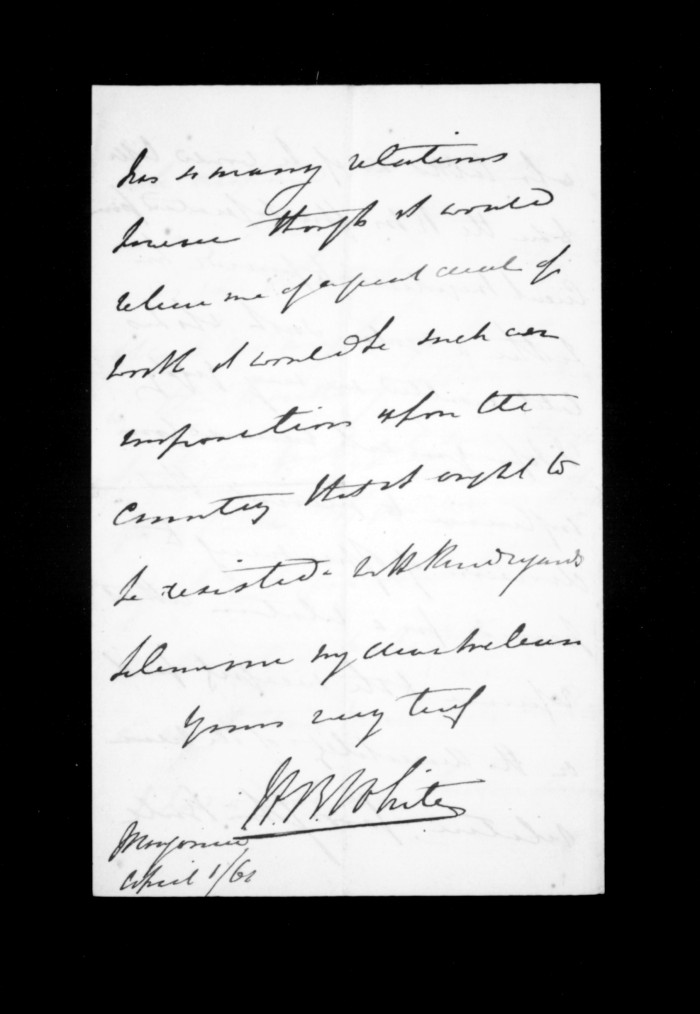 has so many relations
however though it would
relieve me of a great deal of
work it would be such an
imposition upon the
country that it ought to
be resisted - with kind regards
believe me my dear McLean
Yours very truly
W.B. White
Mangonui
April 1/61